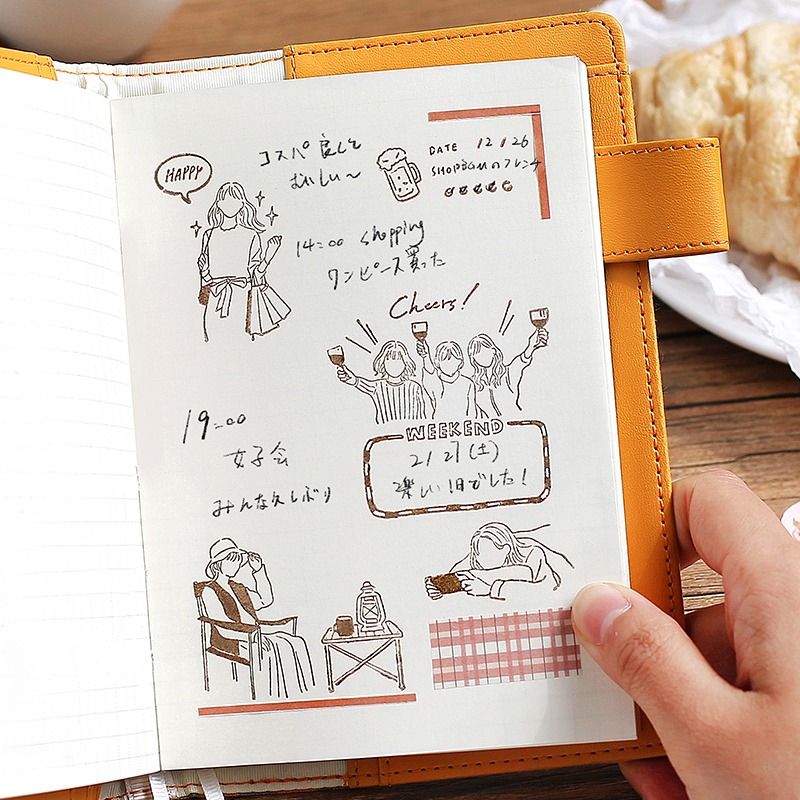 HAPPY
コスパ良くて
おいしい〜
DATE 12/26
SHOP 豆GUMのフレンチ
14:00 shopping
ワンピース買った
Cheers!
19:00
女子会
みんな久しぶり
WEEKEND
2/27(土)
楽しい1日でした!